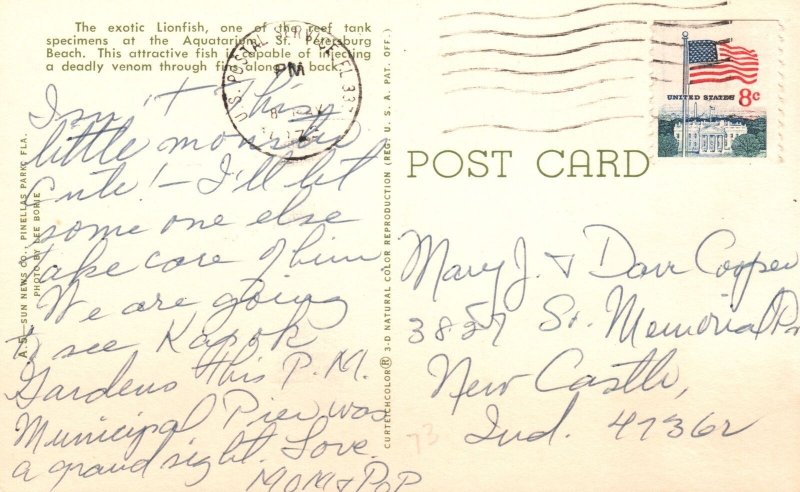 The exotic Lionfish, one of the reef tank
specimens at the Aquatarium, St. Petersburg
Beach. This attractive fish is capable of injecting
a deadly venom through fins along its back.
Isn't this
little monster
cute! - I'll let
some one else
take care of him
We are going
to see Kapok
Gardens this P.M.
Municipal Pier was
a grand sight. Love.
MOM & POP
A.S.—SUN NEWS CO., PINELLAS PARK, FLA.
PHOTO BY LEE BORIE
CURTEICHCOLOR® 3-D NATURAL COLOR REPRODUCTION (REG'T U. S. A. PAT. OFF.)
U.S. POSTAL SERVICE FL 337
PM
UNITED STATES 8c
POST CARD
Mary J. & Dave Cooper
3857 So. Memorial Dr
New Castle,
Ind. 47362
73